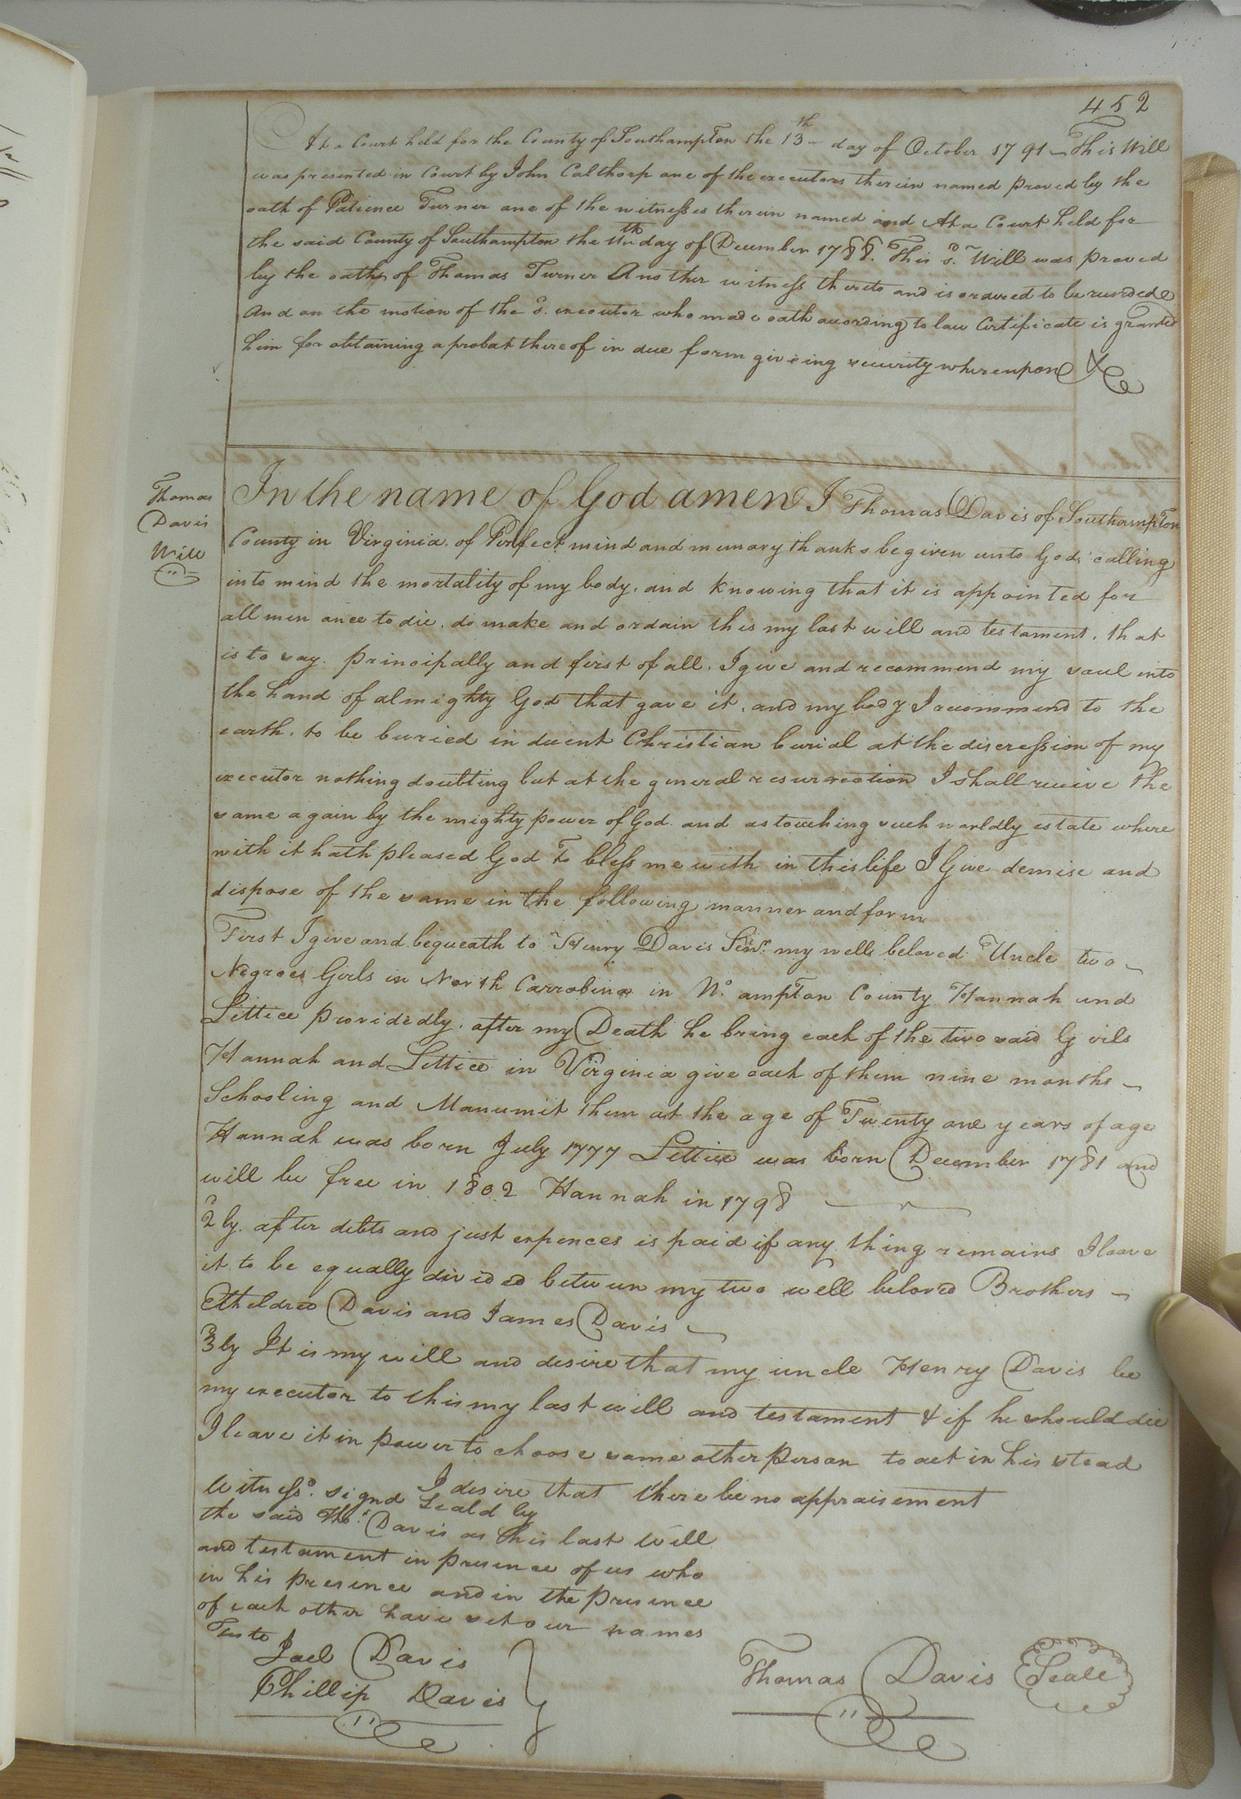 452
At a Court held for the County of Southampton the 13th day of October 1791 This Will
was presented in Court by John Calthorp one of the executors therein named proved by the
oath of Patience Turner one of the witnesses therein named and At a Court held for
the said County of Southampton the 11th day of December 1788. This sd. Will was proved
by the oaths of Thomas Turner Another witness thereto and is ordered to be recorded
And on the motion of the sd. executor who made oath according to law Certificate is grante
him for obtaining a probat thereof in due form giveing security whereupon &c
Thomas
Davis
Will
In the name of God amen I Thomas Davis of Southampton
County in Virginia. of Perfect mind and memory thanks be given unto God; calling
into mind the mortality of my body. and Knowing that it is appointed for
all men once to die. do make and ordain this my last will and testament. that
is to say. principally and first of all. I give and recommend my soul into
the hand of almighty God that gave it. and my body I recommend to the
earth. to be buried in decent Christian burial at the discression of my
executor nothing doubting but at the general resurrection I shall receive the
same again by the mighty power of God. and as touching such worldly estate where
with it hath pleased God to bless me with in this life I Give demise and
dispose of the same in the following manner and form
First I give and bequeath to Henry Davis Senr. my well beloved Uncle two
Negroes Girls in North Carrolina in No. ampton County Hannah and
Littice providedly. after my Death he bring each of the two said Girls
Hannah and Littice in Virginia give each of them nine months
Schooling and Manumit them at the age of Twenty one years of age
Hannah was born July 1777 Littice was born December 1781 and
will be free in 1802 Hannah in 1798
2ly. after debts and just expences is paid if any thing remains I leave
it to be equally divided between my two well beloved Brothers
Etheldred Davis and James Davis
3ly It is my will and desire that my uncle Henry Davis be
my executor to this my last will and testament & if he should die
I leave it in power to choose some other person to act in his stead
I desire that there be no appraisement
Witnessd. signd Seald by
the said Thos. Davis as his last Will
and testament in presence of us who
in his presence and in the presence
of each other have set our names
Teste
Joel Davis
Phillip Davis
Thomas Davis Seale